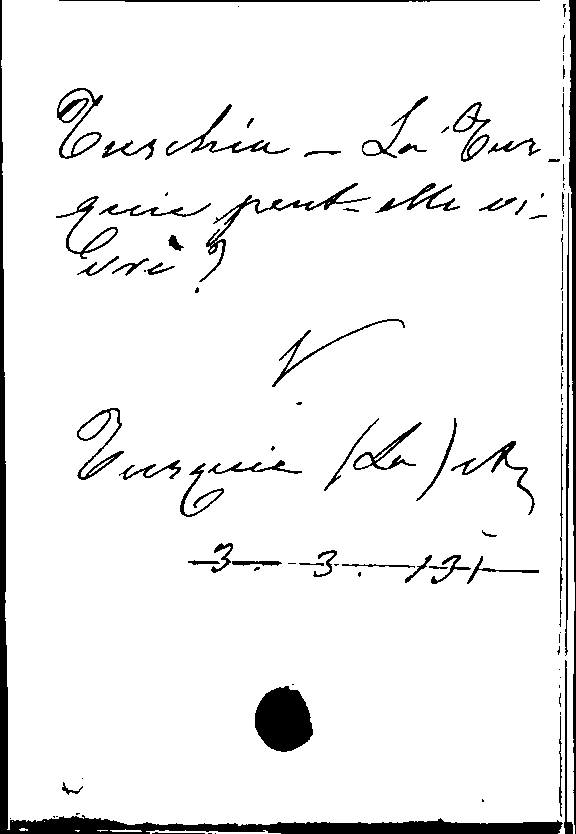 Turchia - La Tur-
quie peut-elle vi-
vre?
V.
Turquie (La) etc
3. 3. 131